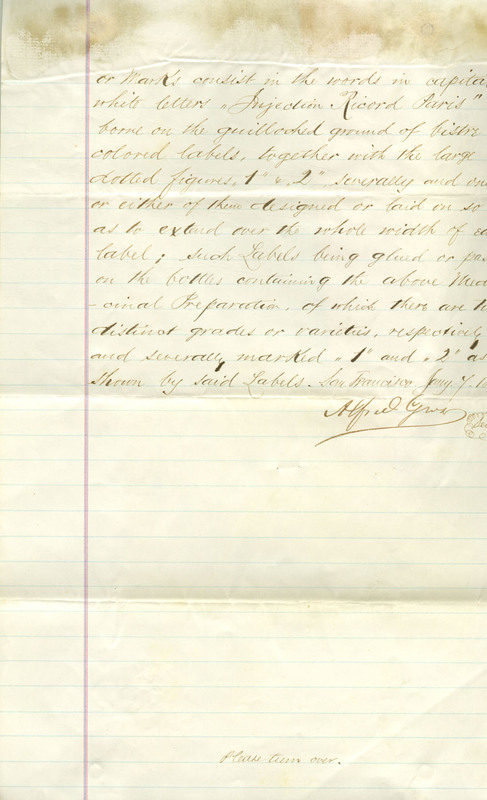 or Marks consist in the words in capita
white letters "Injection Ricord Paris"
borne on the guilloched ground of bistre
colored labels, together with the large
dotted figures, 1" & "2", severally and
or either of them designed or laid on so
as to extend over the whole width of
label; such Labels being glued or pas
on the bottles containing the above Medi
-cinal Preparation, of which there are
distinct grades or varieties, respectively
and severally marked "1" and "2" as
shown by said Labels. San Francisco Jany. 7.
Alfred
Please turn over.